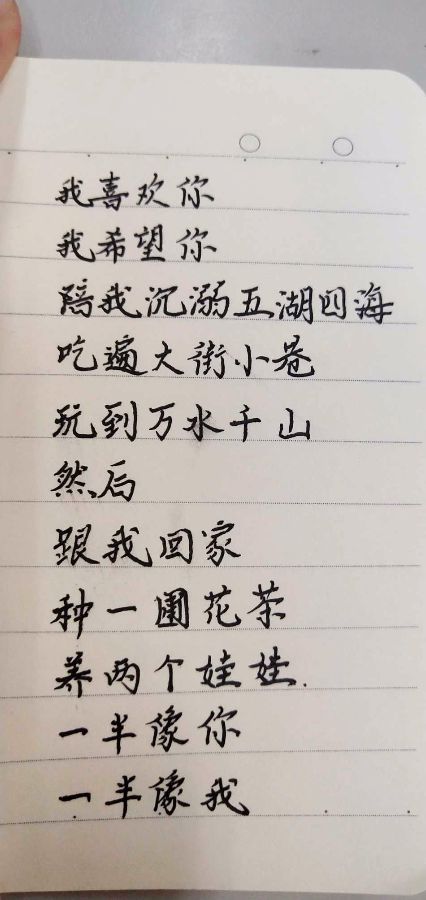 我喜欢你
我希望你
陪我沉溺五湖四海
吃遍大街小巷
玩到万水千山
然后
跟我回家
种一圃花茶
养两个娃娃.
一半像你
一半像我